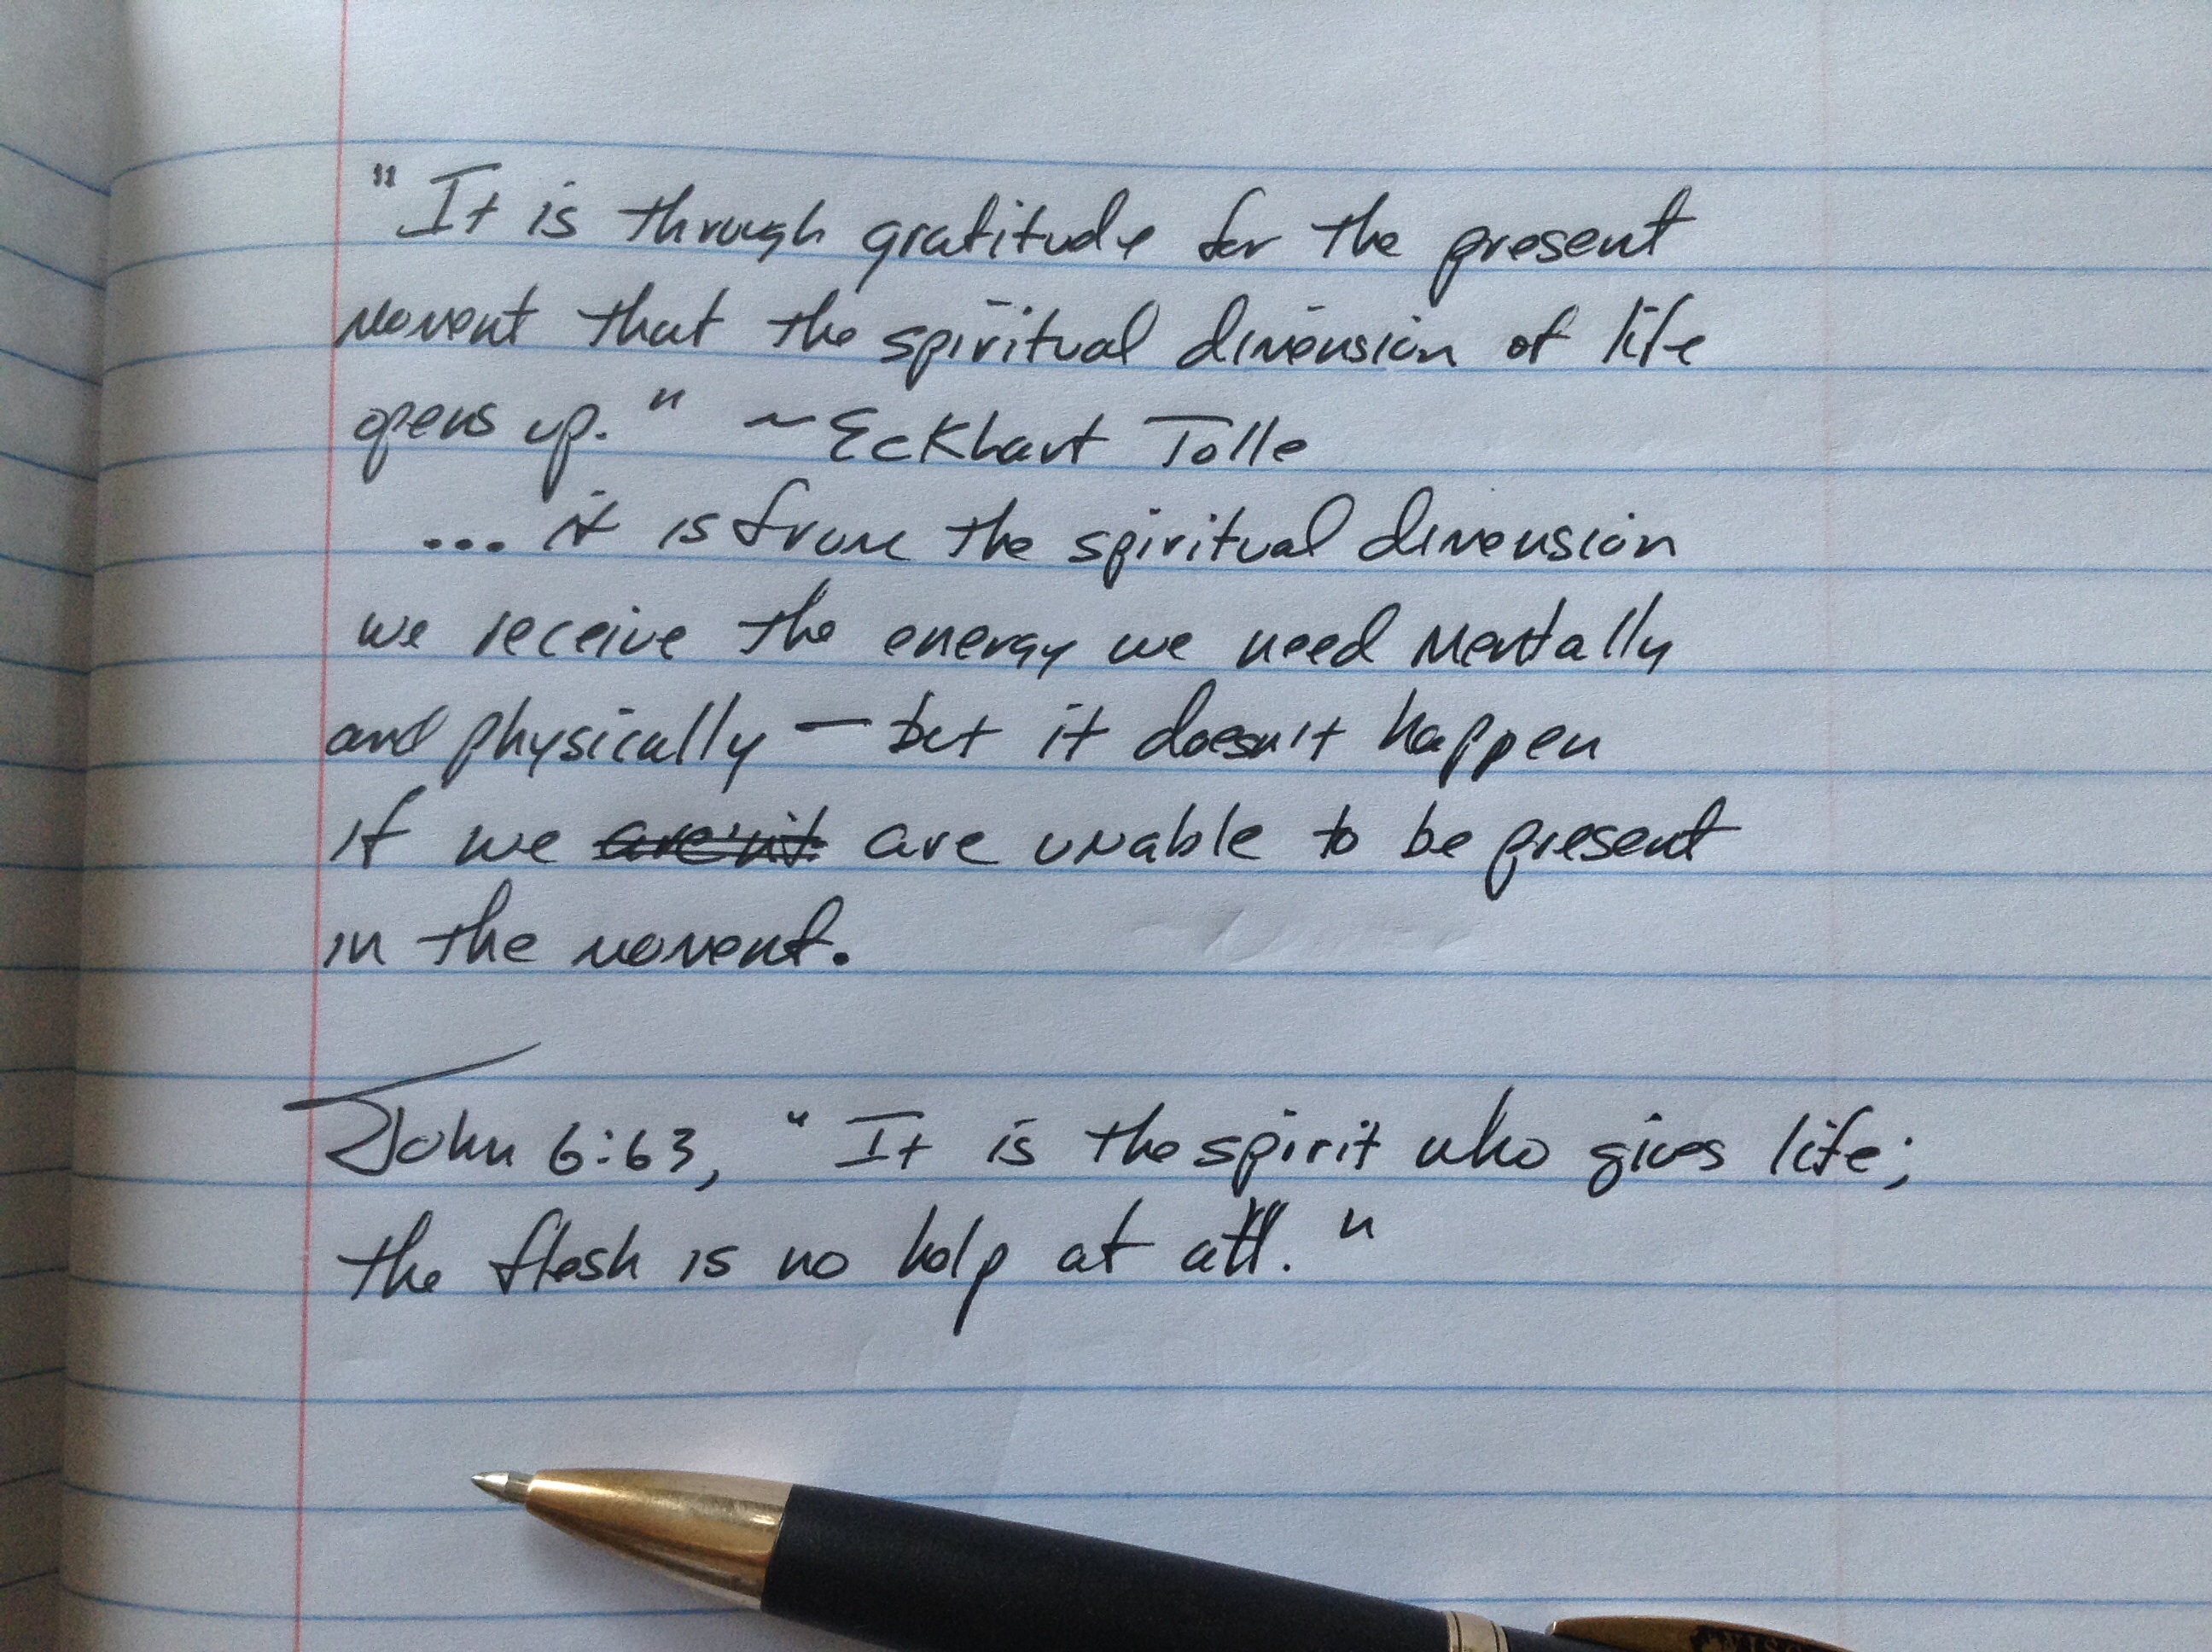 "It is through gratitude for the present
moment that the spiritual dimension of life
opens up." ~Eckhart Tolle
... it is from the spiritual dimension
we receive the energy we need mentally
and physically — but it doesn't happen
if we aren't are unable to be present
in the moment.
John 6:63, "It is the spirit who gives life;
the flesh is no help at all."